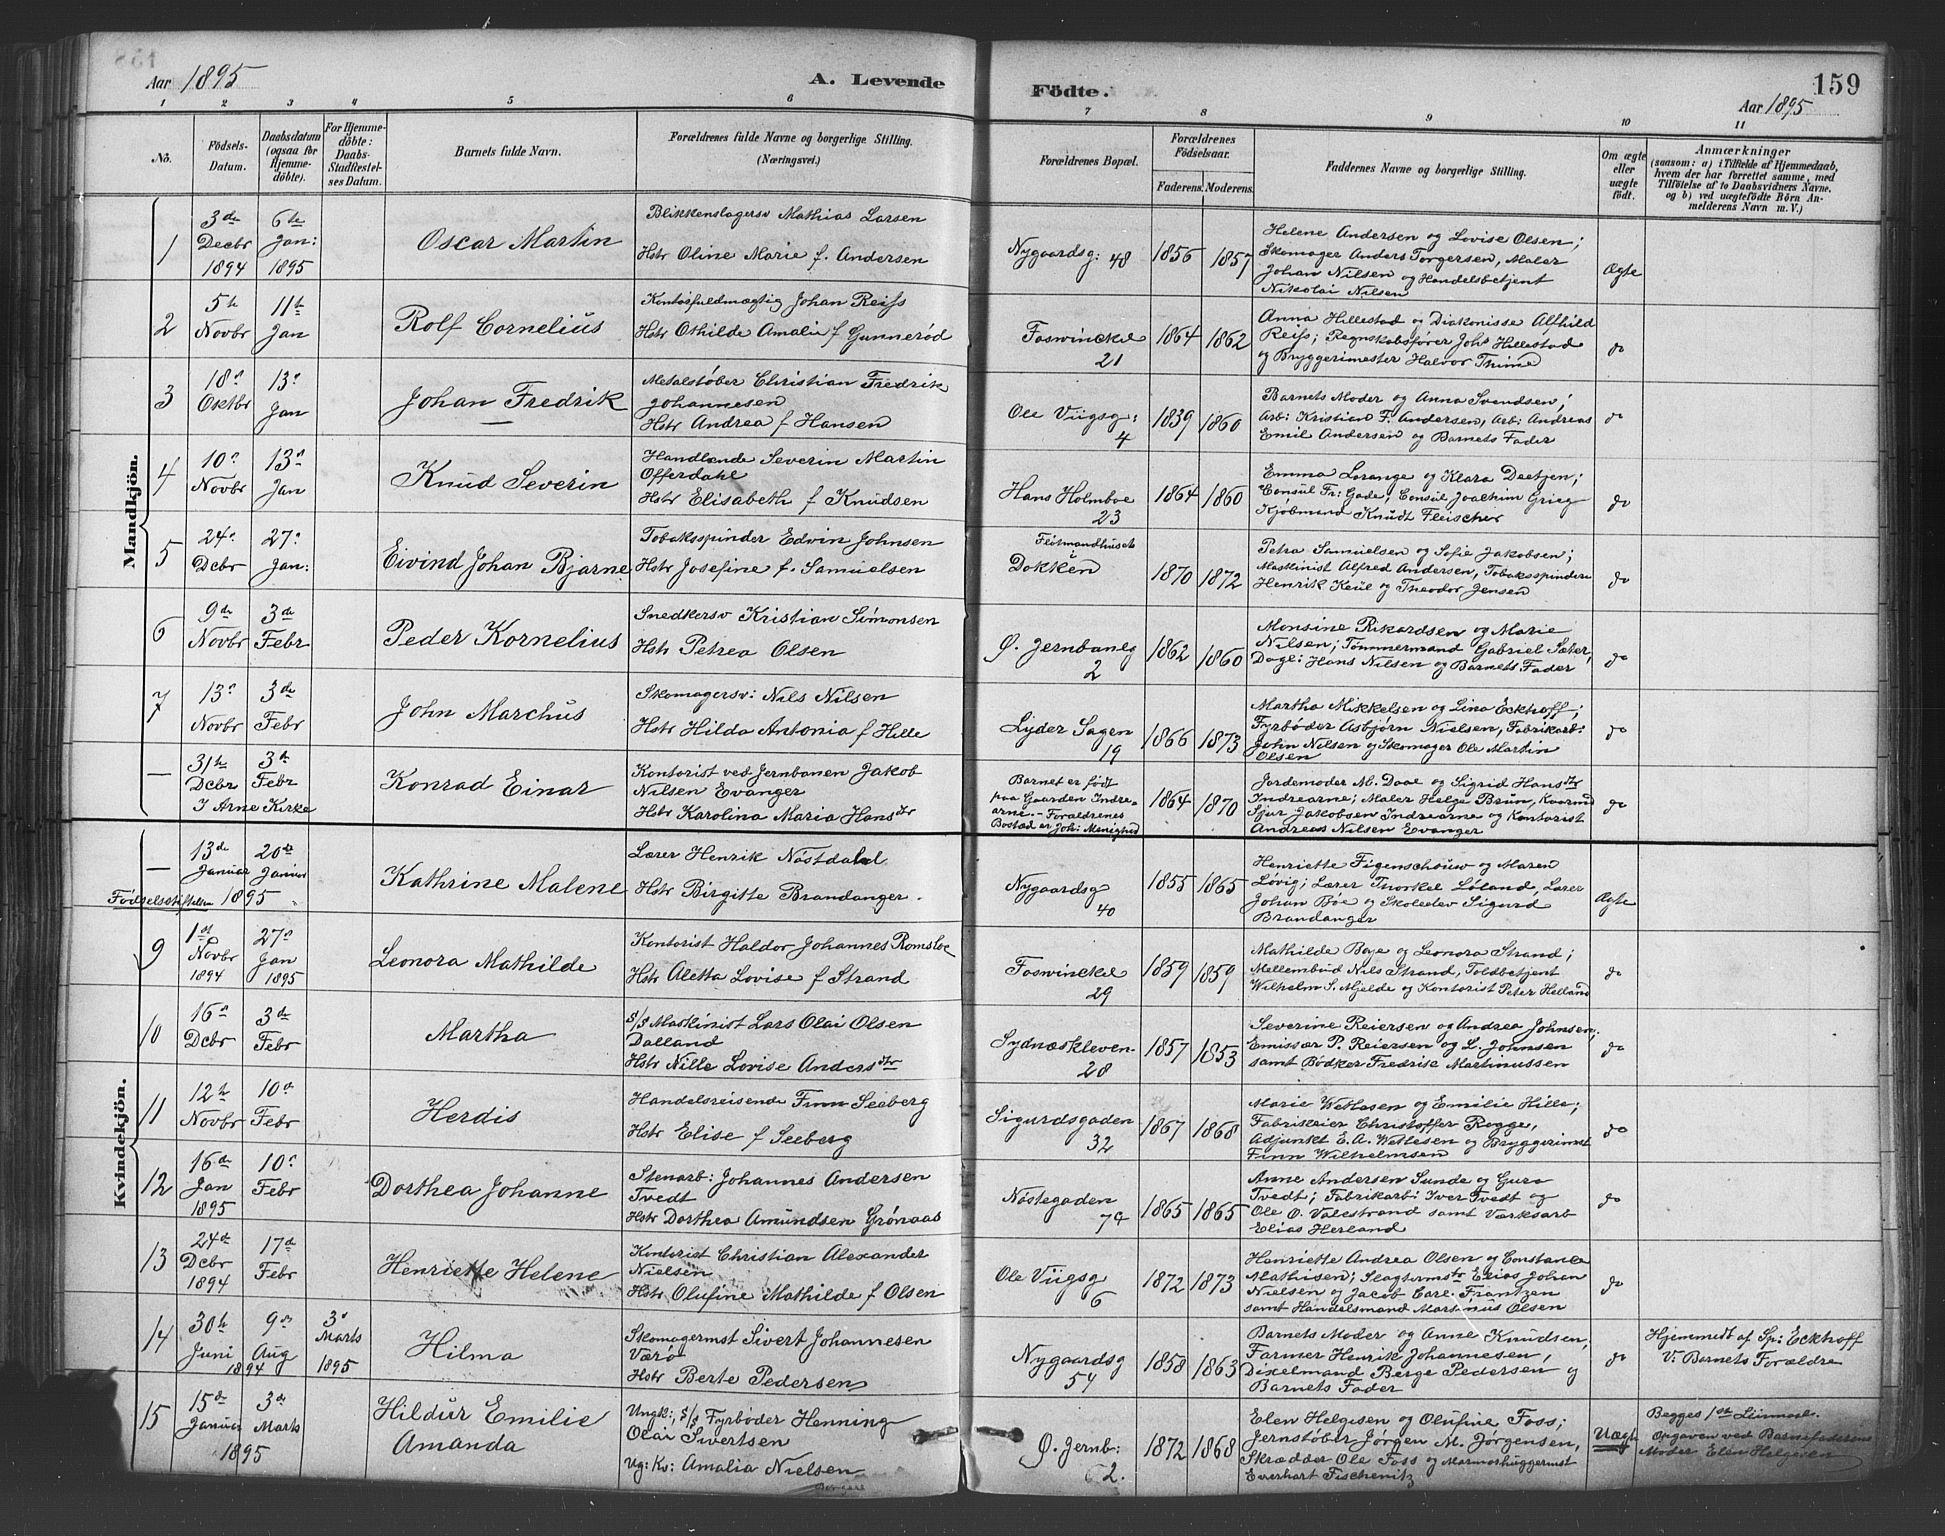 Aar 1895
A. Levende
Födte.
159
Aar 1895
1 2 3 4 5 6 7 8 9 10 11
No.
Födsels-
Datum.
Daabsdatum
(ogsaa for
Hjemme-
döbte).
For Hjemme-
döbte:
Daabs-
Stadfæstel-
ses Datum.
Barnets fulde Navn.
Forældrenes fulde Navne og borgerlige Stilling.
(Næringsvei.)
Forældrenes Bopæl.
Forældrenes
Födselsaar.
Faderens. Moderens.
Faddernes Navne og borgerlige Stilling.
Om ægte
eller
uægte
födt.
Anmærkninger
(saasom: a) i Tilfælde af Hjemmedaab,
hvem der har forrettet samme, med
Tilföielse af to Daabsvidners Navne.
og b) ved uægtefödte Börn An-
melderens Navn m. V.)
Mandkjön.
1
3de
Decbr
1894
6te
Jan:
1895
Oscar Martin
Blikkenslagersv Mathias Larsen
Hstr Oline Marie f. Andersen
Nygaardsg: 48
1856 1857
Helene Andersen og Lovise Olsen;
Skomager Anders Torgersen, Maler
Johan Nilsen og Handelsbetjent
Nikolai Nilsen
Ægte
2
5te
Novbr
11te
Jan
Rolf Cornelius
Kontorfuldmægtig Johan Reiss
Hstr Othilde Amalie f Gunnerød
Foswinckel
21
1864 1862
Anna Hillestad og Diakonisse Althild
Reiss; Regnskabsfører Johs Hillestad
og Bryggerimester Halvor Thime
do
3
18de
Oktbr
13de
Jan
Johan Fredrik
Metalstøber Christian Fredrik
Johannesen
Hstr Andrea f Hansen
Ole Viigsg:
4
1839 1860
Barnets Moder og Anna Svendsen;
Arb: Kristian F. Andersen, Arb: Andreas
Emil Andersen og Barnets Fader
do
4
10de
Novbr
13de
Jan
Knud Severin
Handlende Severin Martin
Offerdahl
Hstr Elisabeth f Knudsen
Hans Holmboe
23
1864 1860
Emma Lorange og Klara Deetjen;
Consul Fr: Gade, Consul Joachim Grieg
Kjøbmand Knudt Fleischer
do
5
24de
Dcbr
27de
Jan:
Eivind Johan Bjarne
Tobaksspinder Edwin Johnsen
Hstr Josefine f. Samuelsen
Flotmandhuset
i
Dokken
1870 1872
Petra Samuelsen og Sofie Jakobsen;
Maskinist Alfred Andersen, Tobaksspindere
Henrik Keul og Theodor Jensen
do
6
9de
Novbr
3de
Febr
Peder Kornelius
Snedkersv Kristian Simonsen
Hstr Petrea Olsen
Ø. Jernbaneg
2
1862 1860
Monsine Rikardsen og Marie
Nilsen; Tømmermand Gabriel Sæter,
Dagl: Hans Nilsen og Barnets Fader
do
7
13de
Novbr
3de
Febr
John Marchus
Skomagersv: Nils Nilsen
Hstr Hilda Antonia f Hille
Lyder Sagen
19
1866 1873
Martha Mikkelsen og Lina Eckhoff;
Fyrbøder Asbjørn Nielsen, Fabrikarb:
John Nilsen og Skomager Ole Martin
Olsen
do
—
31te
Dcbr
3de
Febr
I Arne Kirke
Konrad Einar
Kontorist ved Jernbanen Jakob
Nilsen Evanger
Hstr Karolina Maria Hansdtr
Barnet er født
paa Gaarden Indre-
arne. - Forældrenes
Bostad er Joh: Menighed
1864 1870
Jordemoder M. Daae og Sigrid Hansdtr
Indrearne; Maler Helge Brun, Kaarmd
Sjur Jakobsen Indrearne og Kontorist
Andreas Nilsen Evanger
do
Kvindekjön.
—
13de
Januar
20de
Januar
Fødselsstiftelsen 1895
Kathrine Malene
Lærer Henrik Nøstdahl
Hstr Birgitte Brandanger.
Nygaardsg
40
1855 1865
Henriette Figenschouw og Maren
Løvig; Lærer Thorkel Løland, Lærer
Johan Bøe og Skoleelev Sigurd
Brandanger
Ægte
9
1ste
Novbr
1894
27de
Jan
1895
Leonora Mathilde
Kontorist Haldor Johannes Romsloe
Hstr Aletta Lovise f Strand
Foswinckel
29
1859 1859
Mathilde Boge og Leonora Strand;
Mellembud Nils Strand, Toldbetjent
Wilhelm S. Mjelde og Kontorist Peter Helland
do
10
16de
Dcbr
3de
Febr
Martha
S/S Maskinist Lars Olai Olsen
Dalland
Hstr Nille Lovise Andersdtr
Sydnæskleven
28
1857 1853
Severine Reiersen og Andrea Johnsen;
Emissær P. Reiersen og L. Johnsen
samt Bødker Fredrik Martinussen
do
11
12te
Novbr
10de
Febr
Herdis
Handelsreisende Finn Seeberg
Hstr Elise f Seeberg
Sigurdsgaden
32
1867 1868
Marie Wetlesen og Emilie Hille;
Fabrikeier Christoffer Rogge,
Adjunkt E. A. Wetlesen og Bryggerimst
Finn Wilhelmsen
do
12
16de
Jan
1895
10de
Febr
Dorthea Johanne
Stenarb: Johannes Andersen
Tvedt
Hstr Dorthea Amundsen Grønaas
Nøstegaden
74
1865 1865
Anne Andersen Sunde og Guro
Tvedt; Fabrikarb: Iver Tvedt og
Ole O. Valestrand samt Værksarb
Elias Herland
do
13
24de
Dcbr
1894
17de
Febr
Henriette Helene
Kontorist Christian Alexander
Nielsen
Hstr Olufine Mathilde f Olsen
Ole Viigsg
6
1872 1873
Henriette Andrea Olsen og Constance
Mathisen; Slagtermstr Elias Johan
Nielsen og Jacob Carl Frantzen
samt Handelsmand Martinus Olsen
do
14
30te
Juni
9de
Aug
1894
3de
Marts
1895
Hilma
Skomagermst Sivert Johannesen
Værø
Hstr Berte Pedersen
Nygaardsg
54
1858 1863
Barnets Moder og Anne Knudsen,
Farmer Henrik Johannesen,
Dixelmand Berge Pedersen og
Barnets Fader
do
Hjemmedt af Sp: Eckhoff
V: Barnets Forældre
15
15de
Januar
3de
Marts
1895
Hildur Emilie
Amanda
Ungk:, S/S Fyrbøder Henning
Olai Sivertsen
Ug: Kv: Amalia Nielsen
Borgere
Ø. Jernb:
2.
1872 1868
Elen Helgesen og Olufine Foss;
Jernstøber Jørgen M. Jørgensen,
Skrædder Ole Foss og Marmorhuggermst
Everhart Fischenitz
Uægte
Begges 1ste Leiermaal.
Opgaven ved Barnefaderens
Moder Elen Helgesen